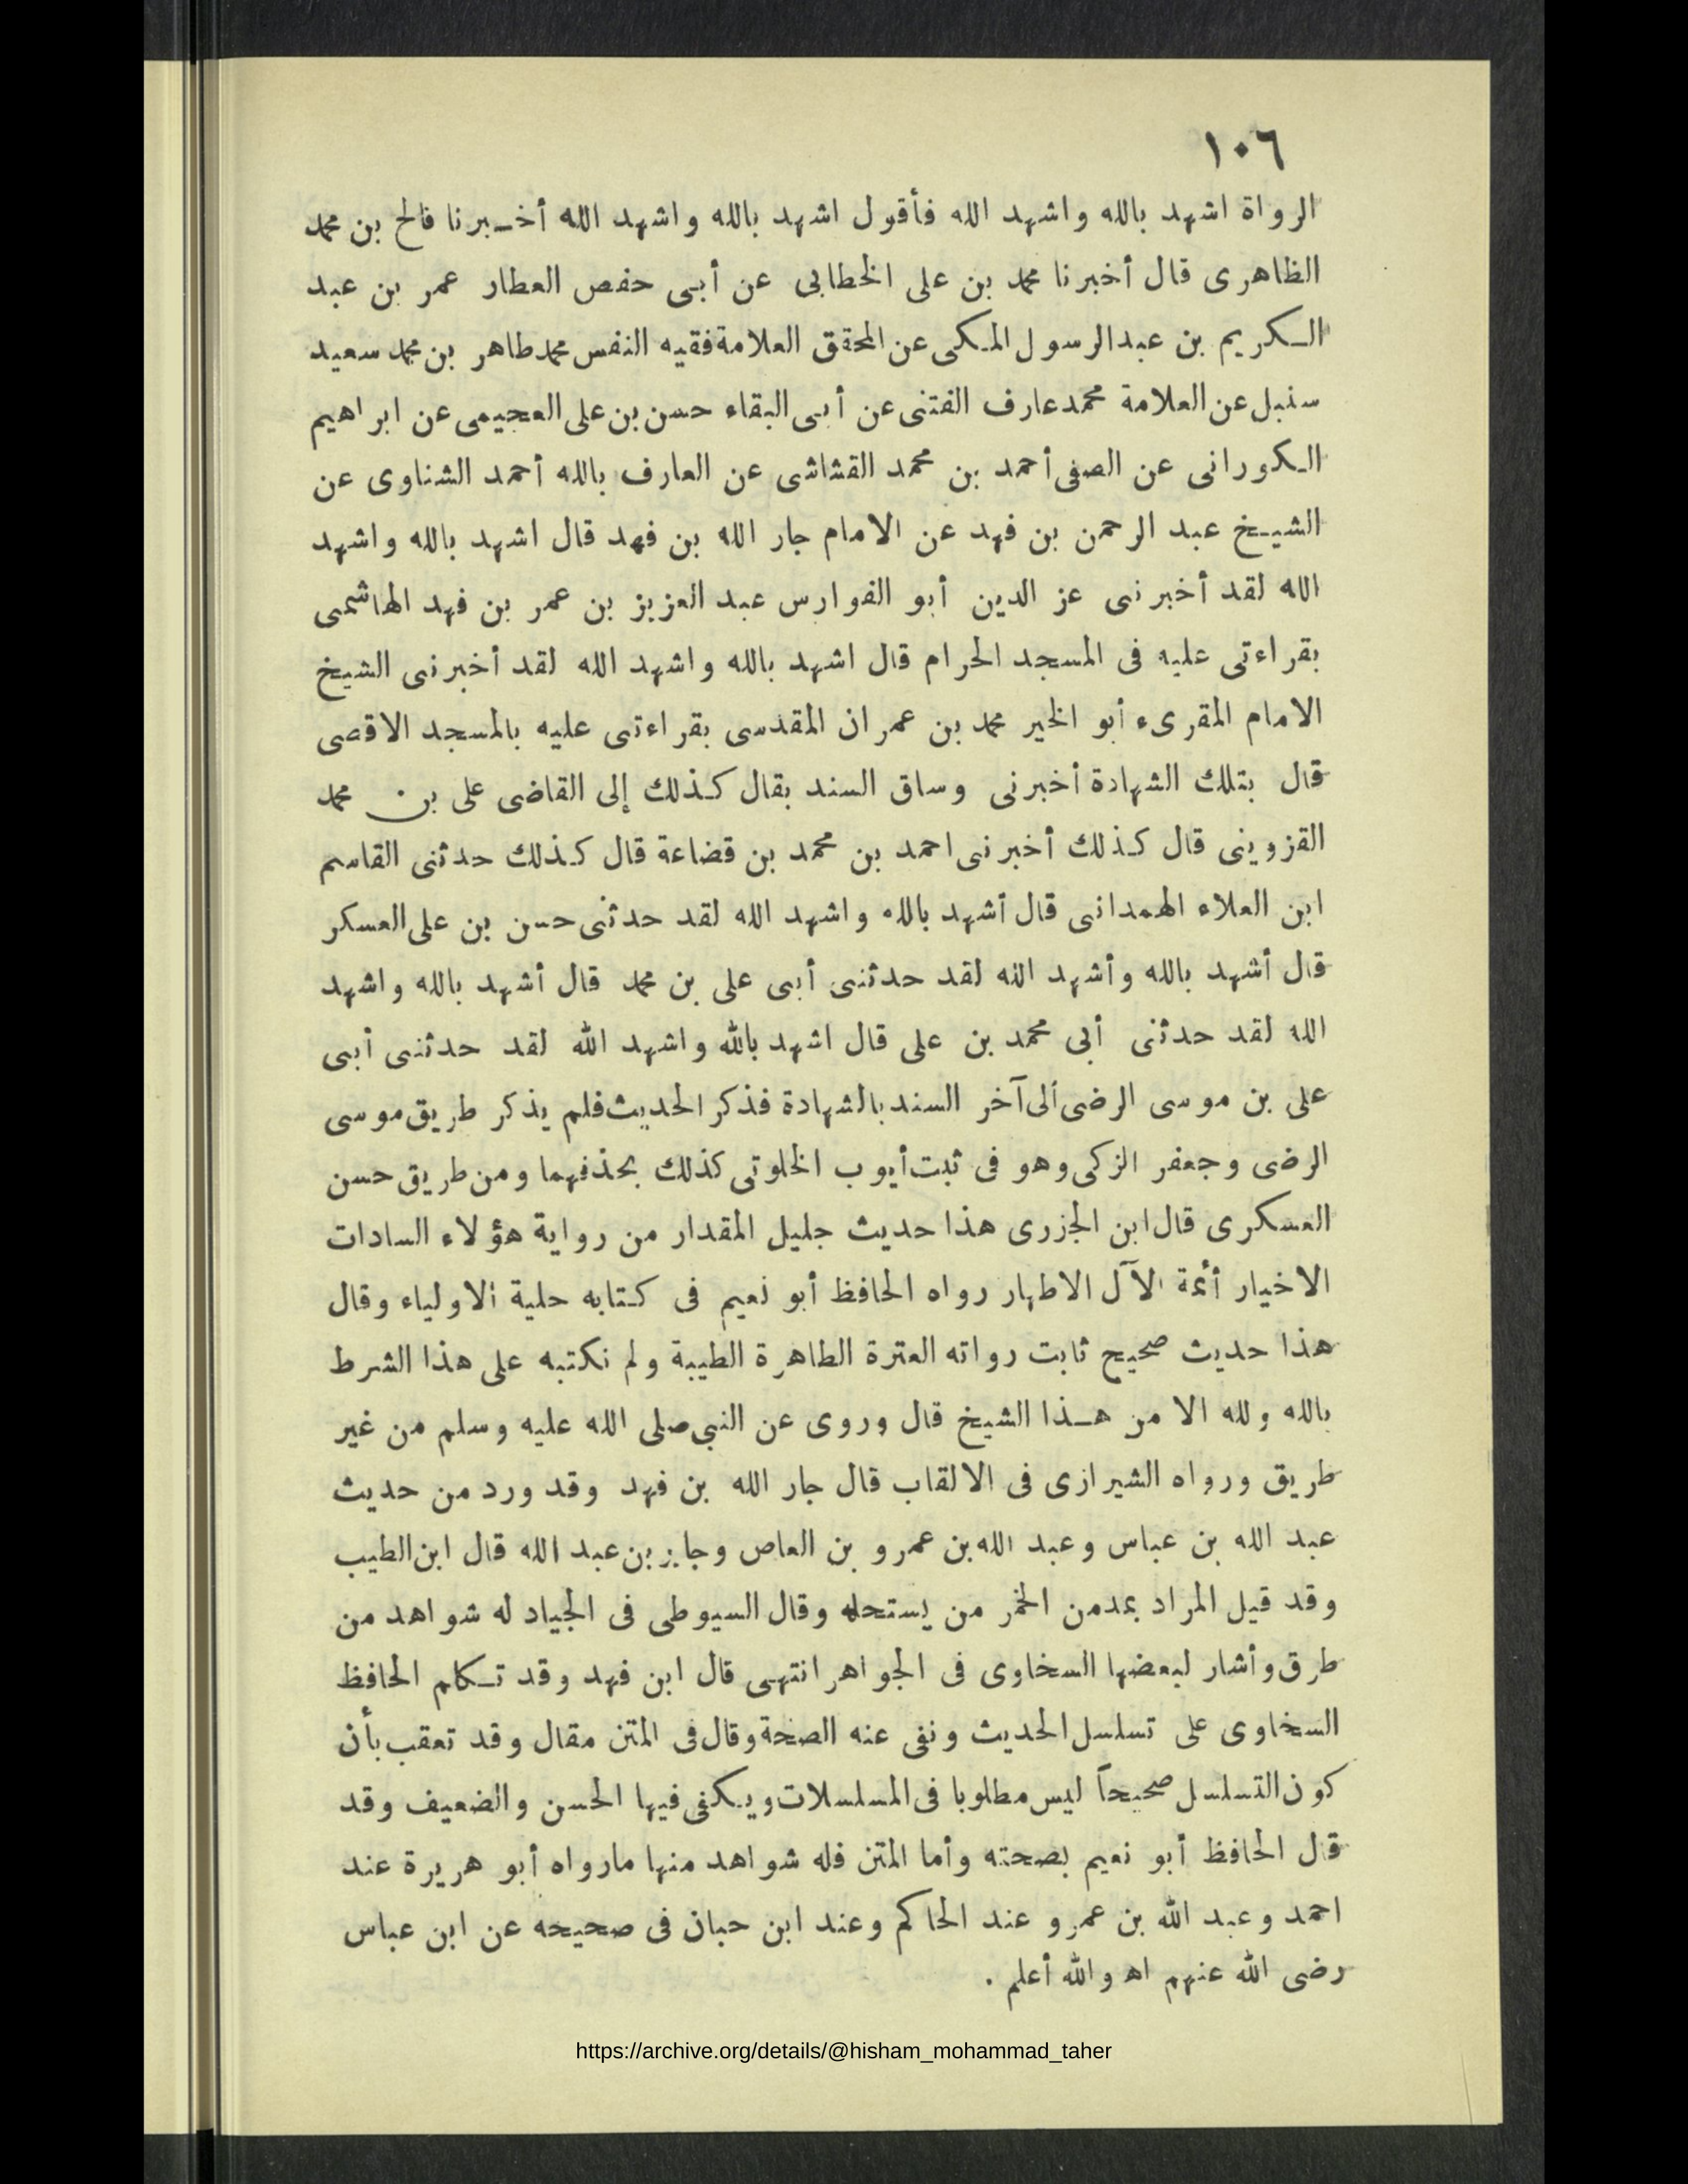 ١٠٦
الرواة اشهد بالله واشهد الله فأقول اشهد بالله واشهد الله أخـبرنا فالح بن محمد
الظاهرى قال أخبرنا محمد بن على الخطابى عن أبى حفص العطار عمر بن عبد
الكريم بن عبدالرسول المكى عن المحقق العلامة فقيه النفس محمد طاهر بن محمد سعيد
سنبل عن العلامة محمد عارف الفتنى عن أبى البقاء حسن بن على العجيمى عن ابراهيم
الكورانى عن الصفى أحمد بن محمد القشاشى عن العارف بالله أحمد الشناوى عن
الشيخ عبد الرحمن بن فهد عن الامام جار الله بن فهد قال اشهد بالله واشهد
الله لقد أخبرنى عز الدين أبو الفوارس عبد العزيز بن عمر بن فهد الهاشمى
بقراءتى عليه فى المسجد الحرام قال اشهد بالله واشهد الله لقد أخبرنى الشيخ
الامام المقرىء أبو الخير محمد بن عمران المقدسى بقراءتى عليه بالمسجد الاقصى
قال بتلك الشهادة أخبرنى وساق السند بقال كذلك إلى القاضى على بن محمد
القزوينى قال كذلك أخبرنى احمد بن محمد بن قضاعة قال كذلك حدثنى القاسم
ابن العلاء الهمدانى قال أشهد بالله واشهد الله لقد حدثنى حسن بن على العسكر
قال أشهد بالله وأشهد الله لقد حدثنى أبى على بن محمد قال أشهد بالله واشهد
الله لقد حدثنى أبى محمد بن على قال اشهد بالله واشهد الله لقد حدثنى أبى
على بن موسى الرضى ألى آخر السند بالشهادة فذكر الحديث فلم يذكر طريق موسى
الرضى وجعفر الزكى وهو فى ثبت أيوب الخلوتى كذلك بحذفهما ومن طريق حسن
العسكرى قال ابن الجزرى هذا حديث جليل المقدار من رواية هؤلاء السادات
الاخيار أئمة الآل الاطهار رواه الحافظ أبو نعيم فى كتابه حلية الاولياء وقال
هذا حديث صحيح ثابت رواته العترة الطاهرة الطيبة ولم نكتبه على هذا الشرط
بالله ولله الا من هـذا الشيخ قال وروى عن النبى صلى الله عليه وسلم من غير
طريق ورواه الشيرازى فى الالقاب قال جار الله بن فهد وقد ورد من حديث
عبد الله بن عباس وعبد الله بن عمرو بن العاص وجابر بن عبد الله قال ابن الطيب
وقد قيل المراد بمدمن الخمر من يستحله وقال السيوطى فى الجياد له شواهد من
طرق وأشار لبعضها السخاوى فى الجواهر انتهى قال ابن فهد وقد تـكلم الحافظ
السخاوى على تسلسل الحديث ونفى عنه الصحة وقال فى المتن مقال وقد تعقب بأن
كون التسلسل صحيحاً ليس مطلوبا فى المسلسلات ويكفى فيها الحسن والضعيف وقد
قال الحافظ أبو نعيم بصحته وأما المتن فله شواهد منها مارواه أبو هريرة عند
احمد وعبد الله بن عمرو عند الحاكم وعند ابن حبان فى صحيحه عن ابن عباس
رضى الله عنهم اه والله أعلم .
https://archive.org/details/@hisham_mohammad_taher